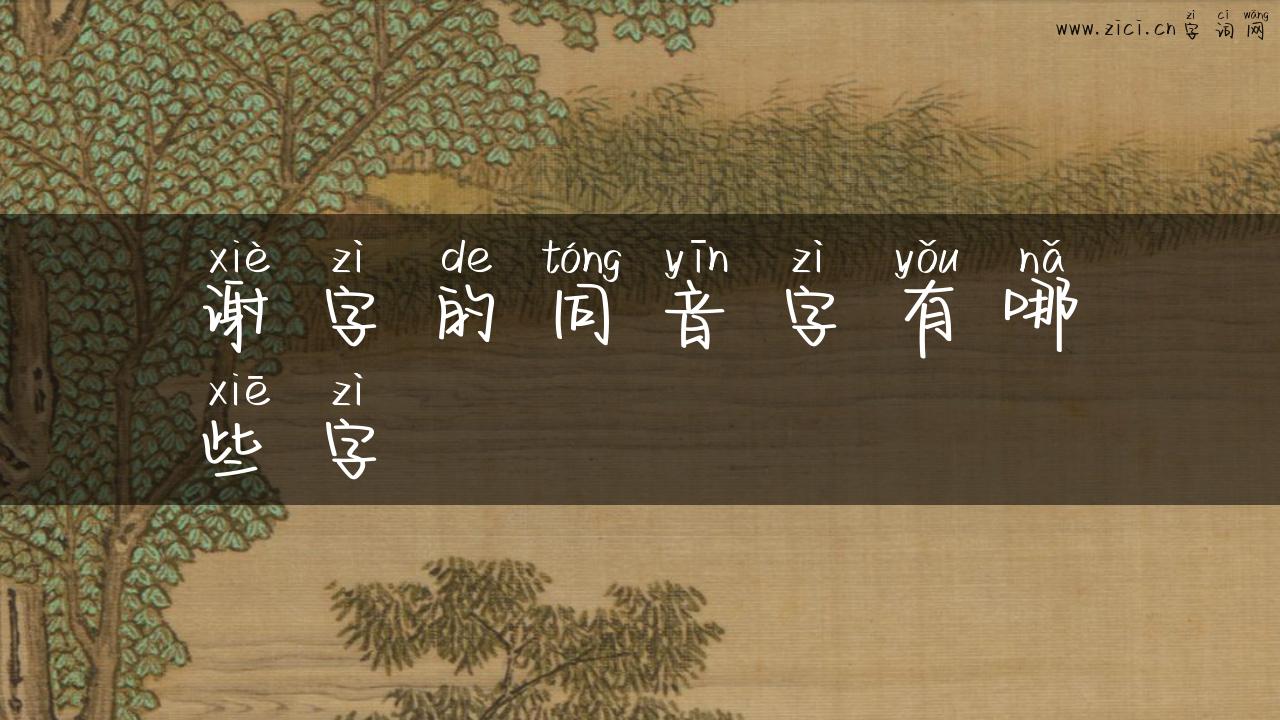 zì cí wǎng
www.zici.cn 字词网
xiè zì de tóng yīn zì yǒu nǎ
谢字的同音字有哪
xiē zì
些字